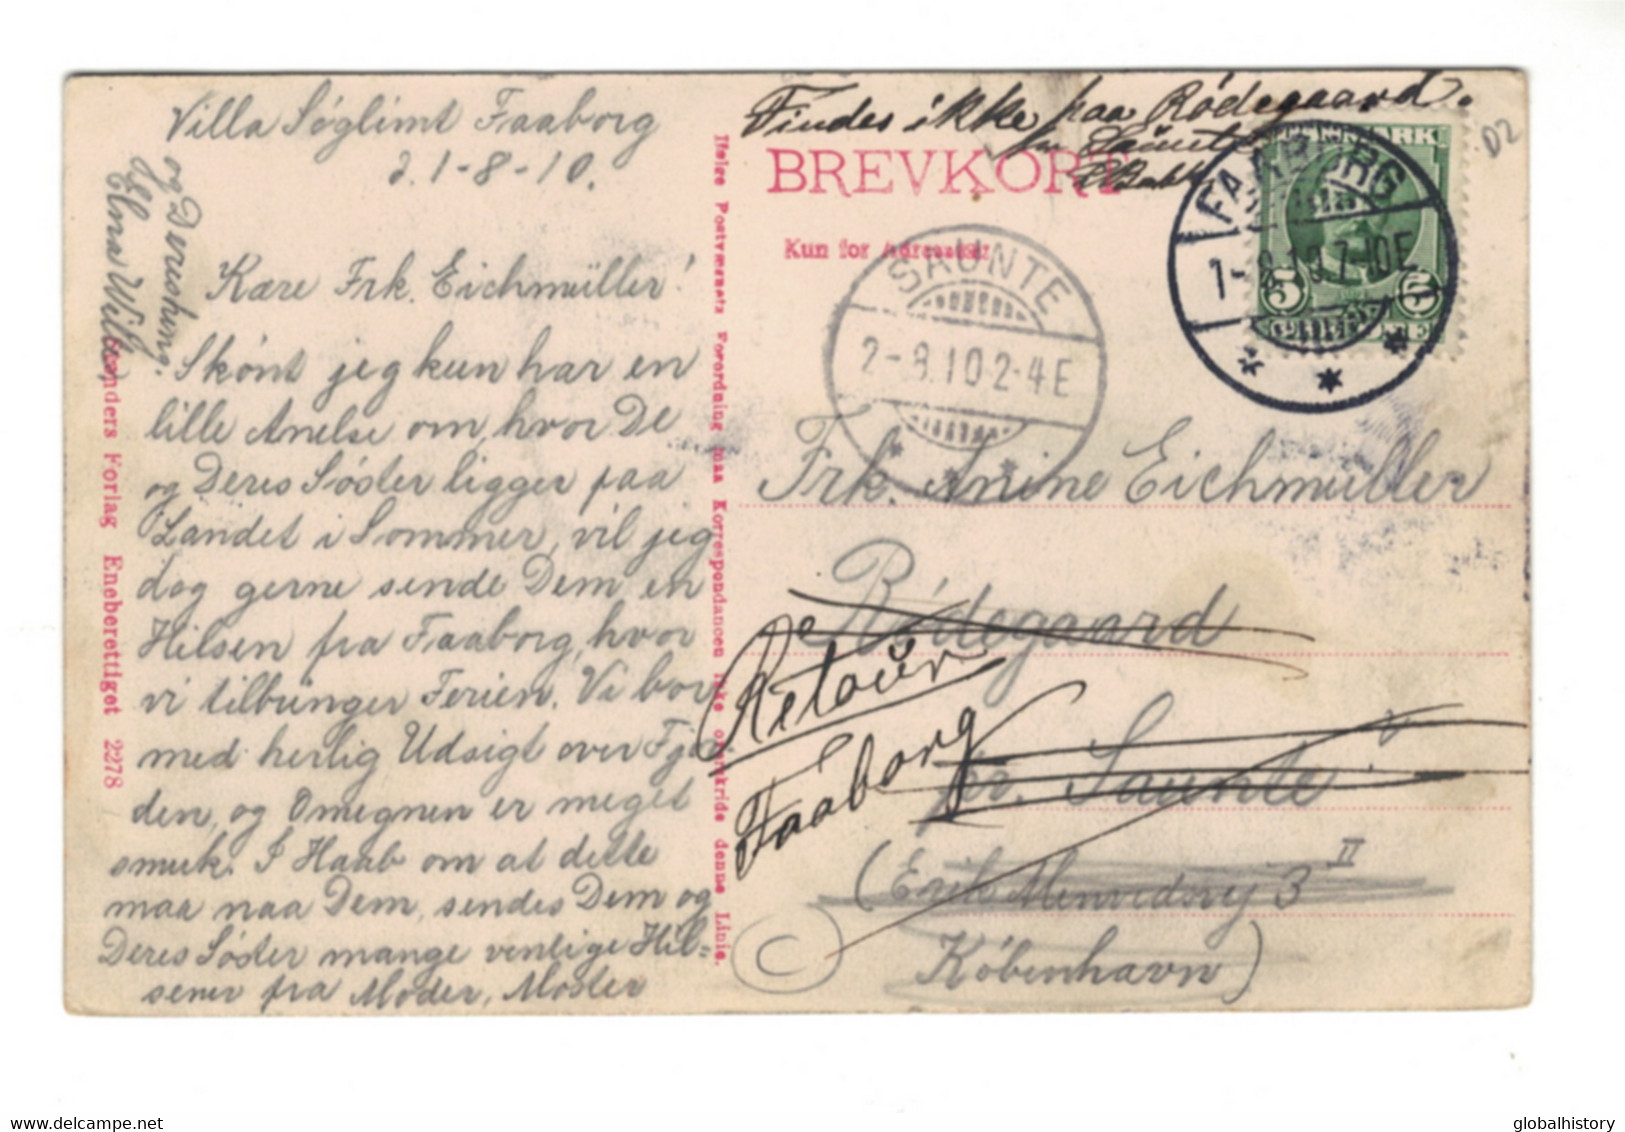 Villa Søglimt Faaborg
d. 1-8-10.
Kære Frk. Eichmüller!
Skønt jeg kun har en
lille Anelse om, hvor De
og Deres Søster ligger paa
Landet i Sommer, vil jeg
dog gerne sende Dem en
Hilsen fra Faaborg, hvor
vi tilbringer Ferien. Vi bor
med herlig Udsigt over Fjor
den, og Omegnen er meget
smuk. I Haab om at dette
maa naa Dem, sendes Dem og
Deres Søster mange venlige Hil=
sener fra Moder, Moster
og Deres heng.
Elna Wille
Enders Forlag Eneberettiget 2278
Ifølge Postvæsnets Forordning maa Korrespondancen ikke overskride denne Linie.
Findes ikke paa Rødegaard.
pr Saunte
BREVKORT
Kun for Adressen
SAUNTE
2-8.10 2-4E
DANMARK
FAABORG
1-8.10 7-10E
5 5
D2
Frk. Anine Eichmüller
Rødegaard
pr. Saunte
(Erik Menvedsvej 3 II
København)
Retour
Faaborg
C
delcampe.net
globalhistory